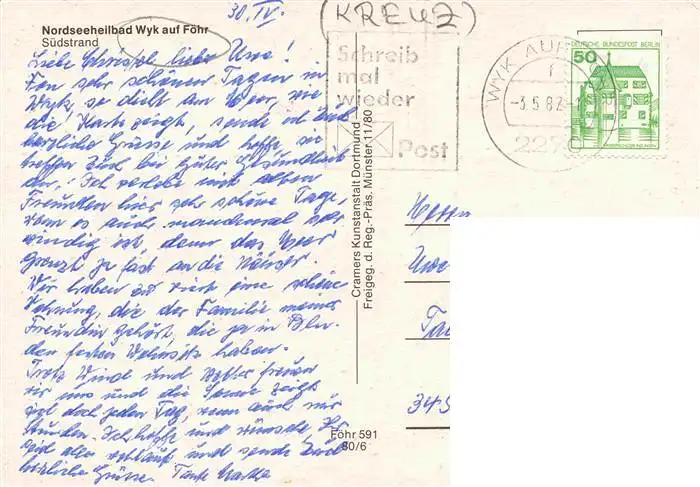 30. IV.
(KREUZ)
Nordseeheilbad Wyk auf Föhr
Südstrand
Liebe Christel, lieber Uwe!
Von sehr schönen Tagen in
Wyk, so dicht am Meer, wie
die Karte zeigt, sende ich Euch
herzliche Grüsse und hoffe sie
treffen Euch bei guter Gesundheit
an. Ich verlebe mit alten
Freunden hier sehr schöne Tage,
wenn es auch manchmal sehr
windig ist, denn das Meer
grenzt ja fast an die Häuser.
Wir haben zu viert eine schöne
Wohnung, die der Familie meiner
Freundin gehört, die ja in
den festen Wohnsitz haben.
Trotz Wind und Wetter freuen
wir uns und die Sonne zeigt
sich doch jeden Tag, wenn auch nur
Stunden. Ich hoffe und wünsche Ihr
seid alle wohlauf und sende Euch
herzliche Grüsse. Tante
Schreib
mal
wieder
Post
WYK AUF
-3.5.82
DEUTSCHE BUNDESPOST BERLIN
50
Cramers Kunstanstalt Dortmund
Freigeg. d. Reg.-Präs. Münster 11/80
Föhr 591
80/6
Uwe
345